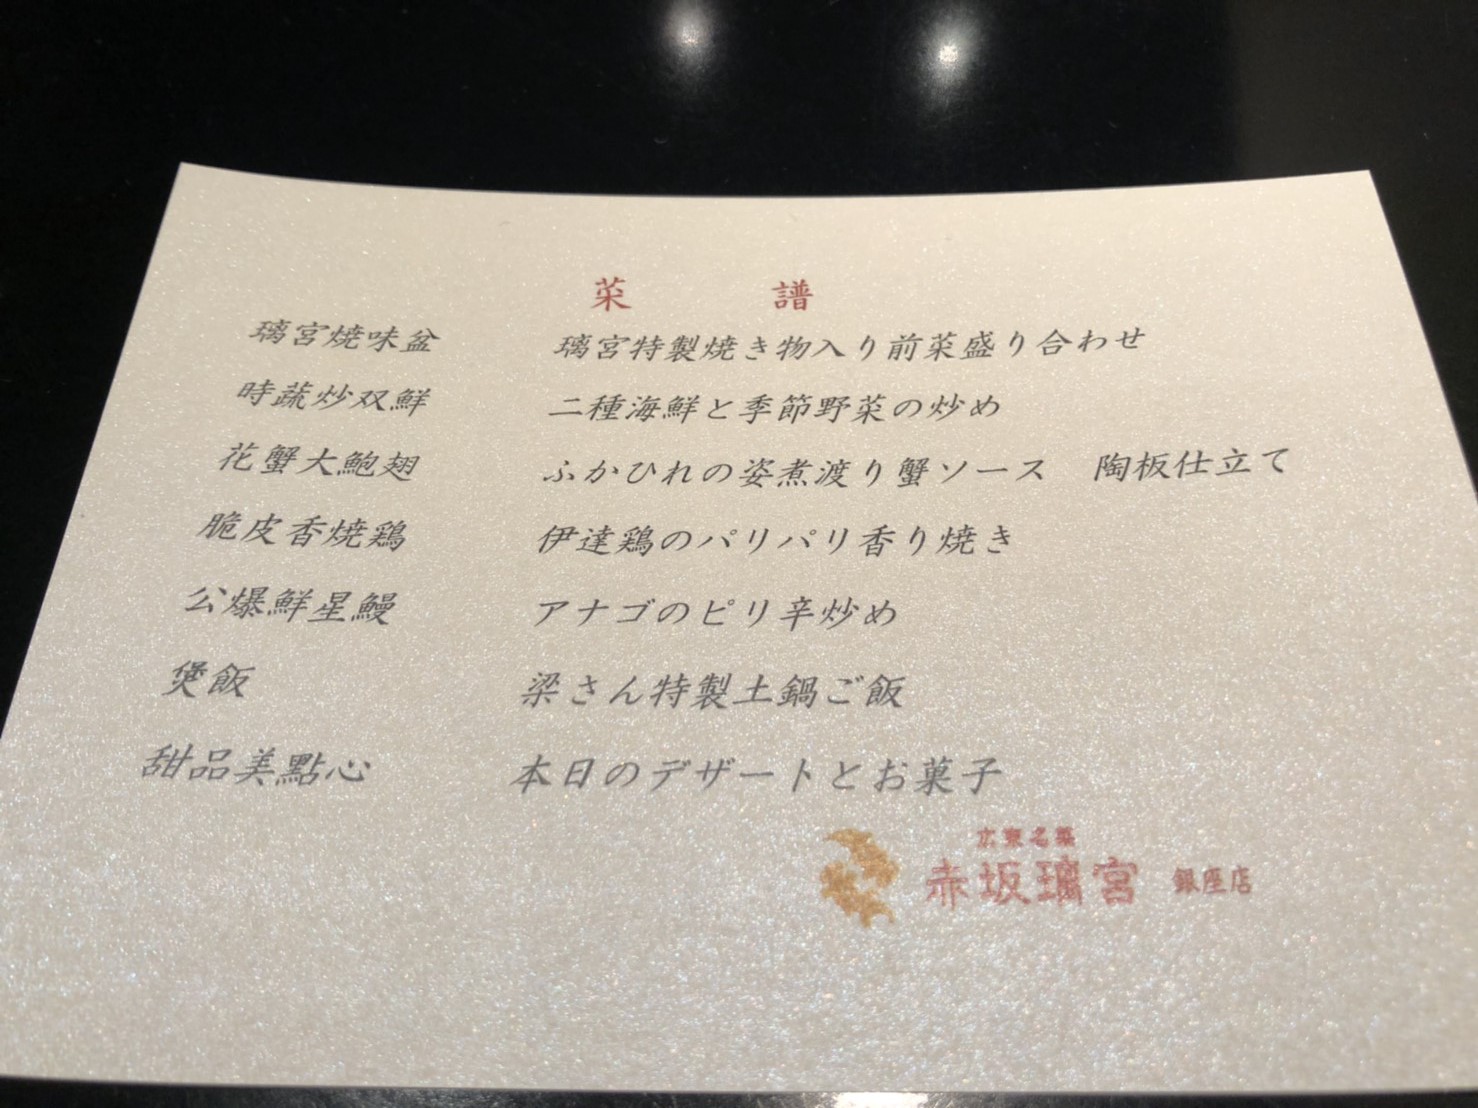 菜　譜
璃宮焼味盆　璃宮特製焼き物入り前菜盛り合わせ
時蔬炒双鮮　二種海鮮と季節野菜の炒め
花蟹大鮑翅　ふかひれの姿煮渡り蟹ソース　陶板仕立て
脆皮香焼鶏　伊達鶏のパリパリ香り焼き
公爆鮮星鰻　アナゴのピリ辛炒め
煲飯　梁さん特製土鍋ご飯
甜品美點心　本日のデザートとお菓子
広東名菜
赤坂璃宮　銀座店